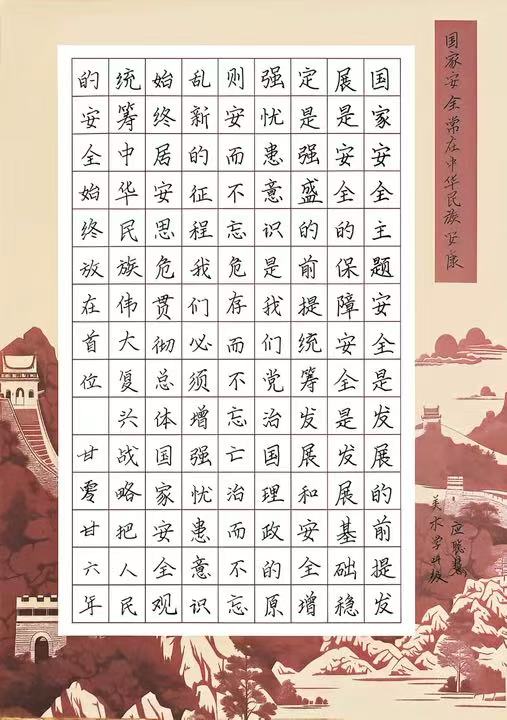 国家安全常在中华民族安康
国家安全主题安全是发展的前提发
展是安全的保障安全是发展基础稳
定是强盛的前提统筹发展和安全增
强忧患意识是我们党治国理政的原
则安而不忘危存而不忘亡治而不忘
乱新的征程我们必须增强忧患意识
始终居安思危贯彻总体国家安全观
统筹中华民族伟大复兴战略把人民
的安全始终放在首位 甘零甘六年
应聪慧